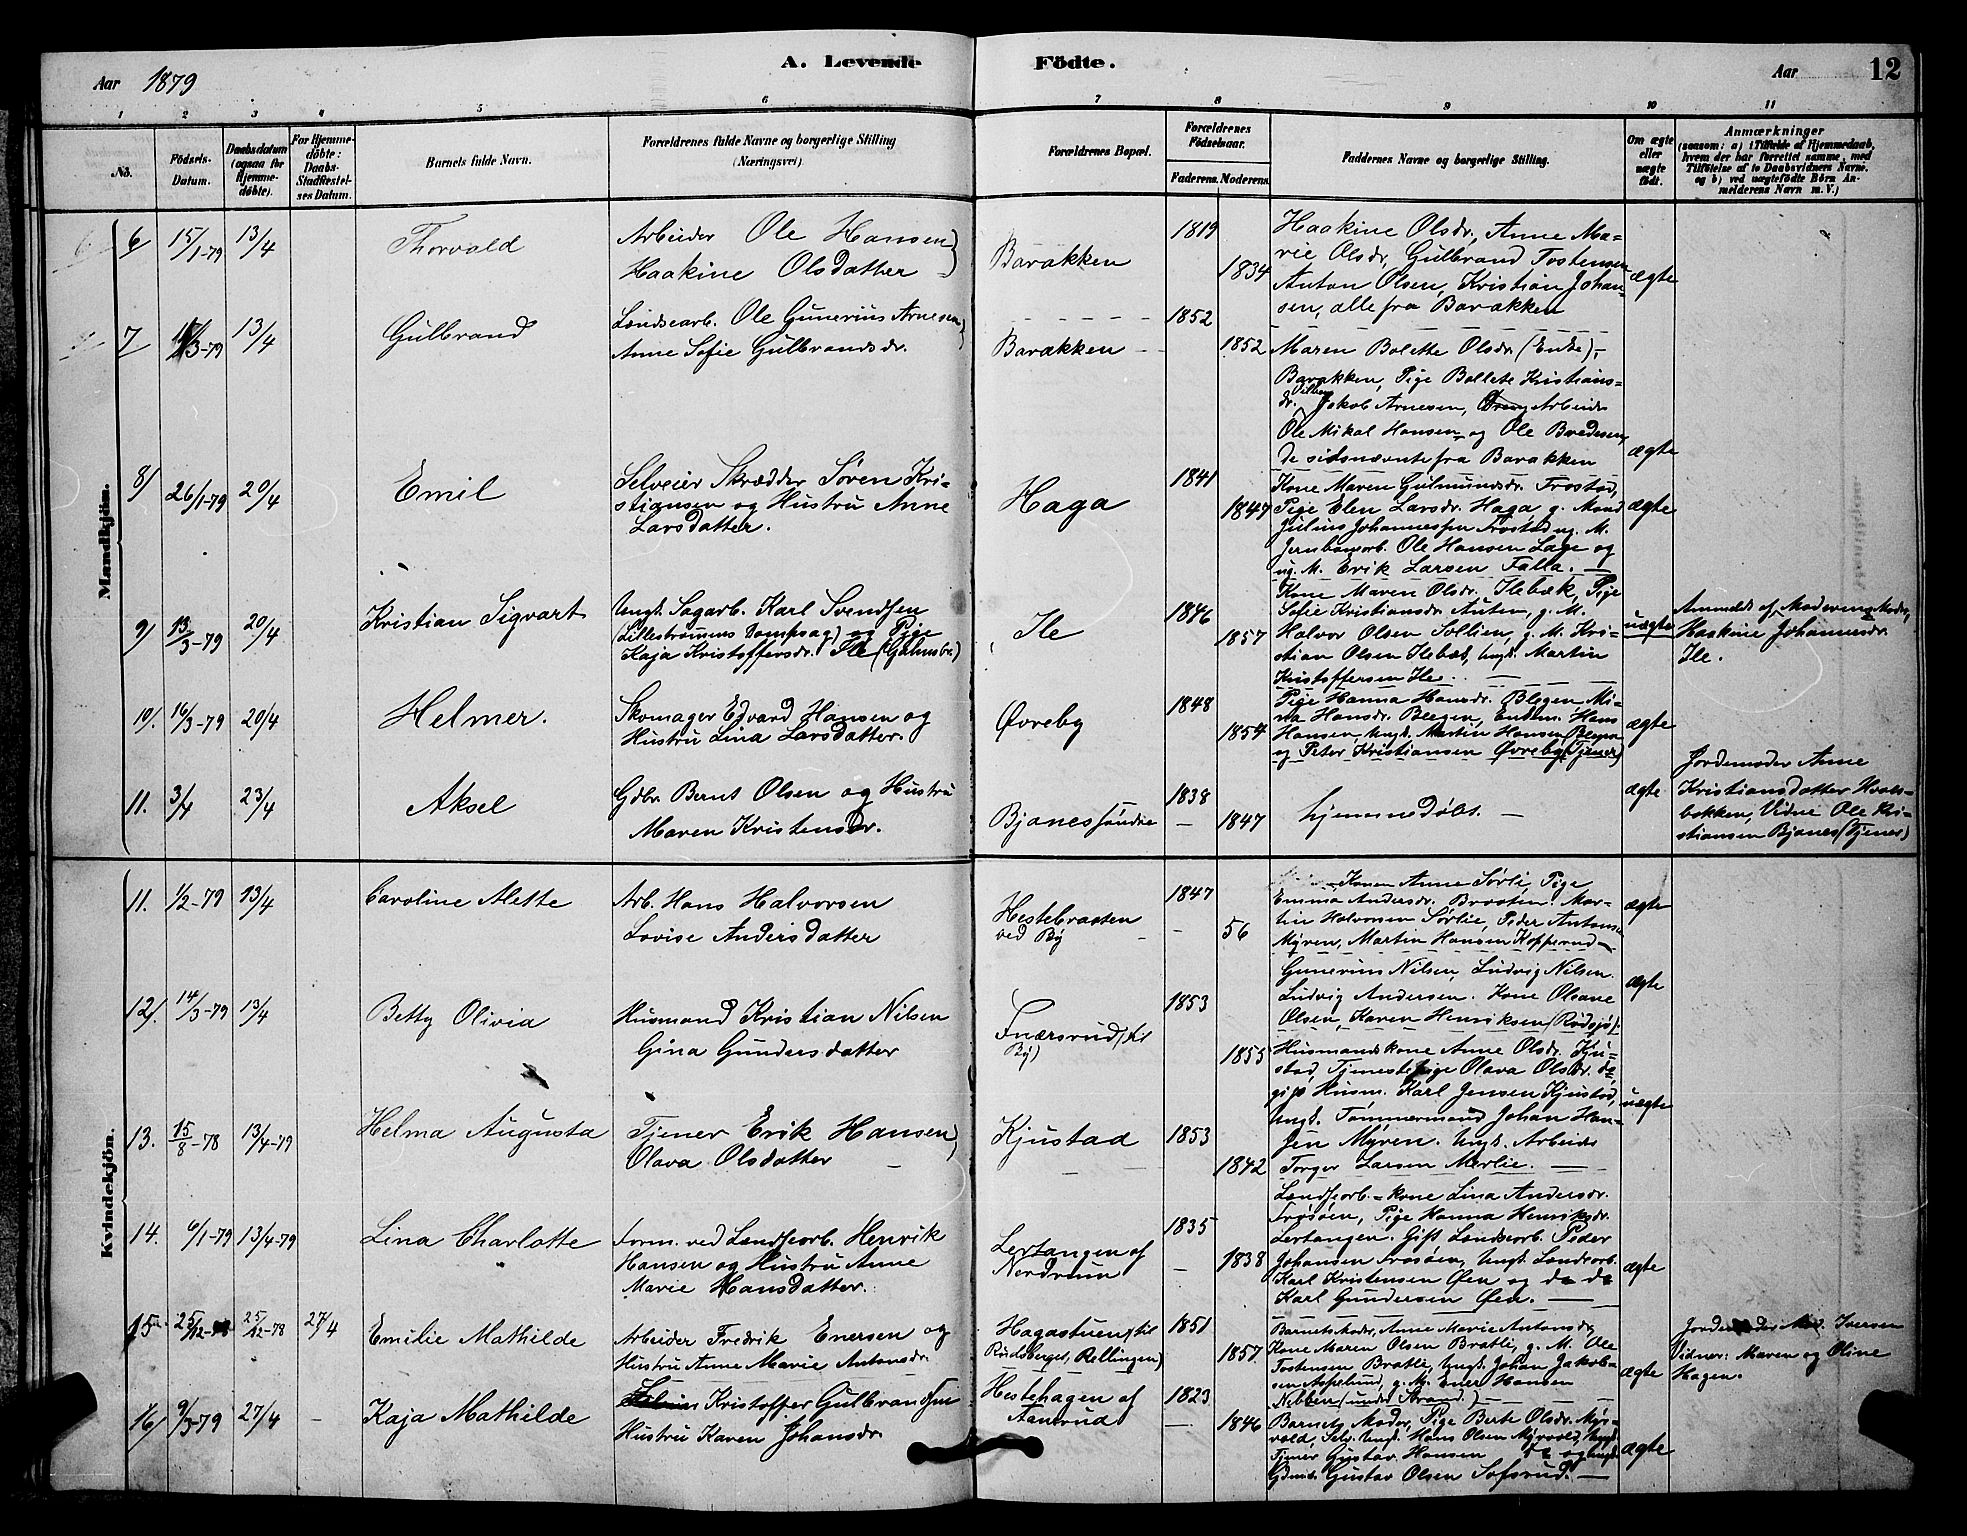 A. Levende Födte.
Aar 1879
Aar
12
1 2 3 4 5 6 7 8 9 10 11
No.
Födsels-
Datum.
Daabsdatum
(ogsaa for
Hjemme-
döbte).
For Hjemme-
döbte:
Daabs-
Stadfæstel-
ses Datum.
Barnets fulde Navn.
Forældrenes fulde Navne og borgerlige Stilling
(Næringsvei)
Forældrenes Bopæl.
Forældrenes
Födselsaar.
Faderens. Moderens.
Faddernes Navne og borgerlige Stilling.
Om ægte
eller
uægte
födt.
Anmærkninger
(saasom: a) i Tilfælde af Hjemmedaab,
hvem der har forrettet samme, med
Tilföielse af to Daabsvidners Navne,
og b) ved uægtefödte Börn An-
melderens Navn m. V.)
Mandkjön.
6/ 15/1-79 13/4
Thorvald
Arbeider Ole Hansen
Haakine Olsdatter
Barakken
1819
1834
Haakine Olsdr, Anne Ma-
rie Olsdr, Gulbrand Tostensen
Anton Olsen, Kristian Johan-
sen, alle fra Barakken
ægte
7 /3-79 13/4
Gulbrand
Landsearb. Ole Gunerius Arnesen
Anne Sofie Gulbrandsdr.
Barakken
1852
1852
Maren Bolette Olsdr (Enke),
Barakken, Pige Bollete Kristians-
dr. Jakob Arnesen, Arbeider
Ole Mikal Hansen og Ole Bredesen,
de sidsnævnte fra Barakken
ægte
8/ 26/1-79 20/4
Emil
Selveier Skrædder Sören Kri-
stiansen og Hustru Anne
Larsdatter.
Haga
1841
1847
Kone Maren Gulmundsdr. Frostad,
Pige Elen Larsdr. Haga g. Mand
Julius Johannessen Frostad ug. M.
Jernbanearb. Ole Hansen Lage og
ug. M. Erik Larsen Falla.
ægte
9/ 13/3-79 20/4
Kristian Sigvart
Ungk. Sagarb. Karl Svendsen
(Lillestrømmens Dampsag) og Pige
Kaja Kristoffersdr. Ile
Ile
1846
1857
Kone Maren Olsdr. Ilebæk, Pige
Sofie Kristiansdr. Auten, g. M.
Halvor Olsen Sollien, g. M. Kri-
stian Olsen Ilebæk, Ungk. Martin
Kristoffersen Ile
uægte
Anmeldt af Moderens Moder,
Haakine Johannesdr.
Ile.
10/. 16/3-79 20/4
Helmer.
Skomager Edvard Hansen og
Hustru Lina Larsdatter.
Øvreby
1848
1854
Pige Hanna Hansdr. Blegen Mi-
na Hansdr. Blegen, Hans
Hansen, Ungk. Martin Hansen Blegen
og Peter Kristiansen Øvreby (Tjener)
ægte
11. 3/4 23/4
Aksel
Gdbr. Bernt Olsen og Hustru
Maren Kristensdr.
Bjanessöndre
1838
1847
hjemmedöbt.
ægte
Jordemoder Anne
Kristiansdatter
bakken, Vidne Ole Kri-
stiansen Bjanes (Tjener)
Kvindekjön.
11. 1/2-79 13/4
Caroline Alette
Arb. Hans Halvorsen
Lovise Andersdatter
Hestebraaten
ved By
1847
56
Konen Anne Sørli, Pige
Emma Andersdr. Braaten, Mar-
tin Halvorsen Sørlie, Peder Antonsen
Myren, Martin Hansen Kopperud
ægte
12/. 14/3-79 13/4
Betty Olivia
Husmand Kristian Nilsen
Gina Gundersdatter
Fnærsrud
By)
1853
1855
Gunerius Nilsen, Ludvig Nilsen
Ludvig Andersen. Kone Olsane
Olsen, Karen Henriksen (Rødsjø)
ægte
13. 15/8-78 13/4-79
Helma Augusta
Tjener Erik Hansen
Olava Olsdatter
Kjustad
1853
1842
Husmandskone Anne Olsdr. Kju-
stad, Tjenestepige Olava Olsdr. do
gift Husm. Karl Jensen Kjustad,
Ungk. Tømmermand Johan Han-
sen Myren. Ungk. Arbeider
Torger Larsen Mærlie.
uægte
14. 6/1-79 13/4-79
Lina Charlotte
Form. ved Landsearb. Henrik
Hansen og Hustru Anne
Marie Hansdatter.
Lertangen af
Nordrum
1835
1838
Landsearb.-kone Lina Andersdr.
Frøsöen, Pige Hanna Henriksdr.
Lertangen. Gift Landsearb. Peder
Johansen Frosöen, Ungk. Landsearb.
Karl Kristensen Øen og do do
Karl Gundersen Øen.
ægte
15. 25/12-78 25/12-78 27/4
Emilie Mathilde
Arbeider Fredrik Enersen og
Hustru Anne Marie Antonsdr.
Hagastuen (til
Rudsberget, Rellingen)
1851
1857
Barnets Moder, Anne Marie Antonsdr,
Kone Maren Olsen Bratli, g. M. Ole
Tostensen Bratli, Ungk. Johan Jakob-
sen Aspelund, g. M. Ener Hansen
Nebben (under Strand.)
ægte
Jordemoder Iversen
Vidner: Maren og Oline
Hagen.
16/ 9/3-79 27/4 -
Kaja Mathilde
Kristoffer Gulbrandsen
Hustru Karen Johansdr.
Hestehagen af
Fanerud
1823
1846
Barnets Moder, Pige Berte Olsdr. Myr-
vold, Selv. Ungk. Hans Olsen Myrvold, Ungk.
Tjener Gustav Hansen og Ungk.
Gustav Olsen Sofsrud.
ægte